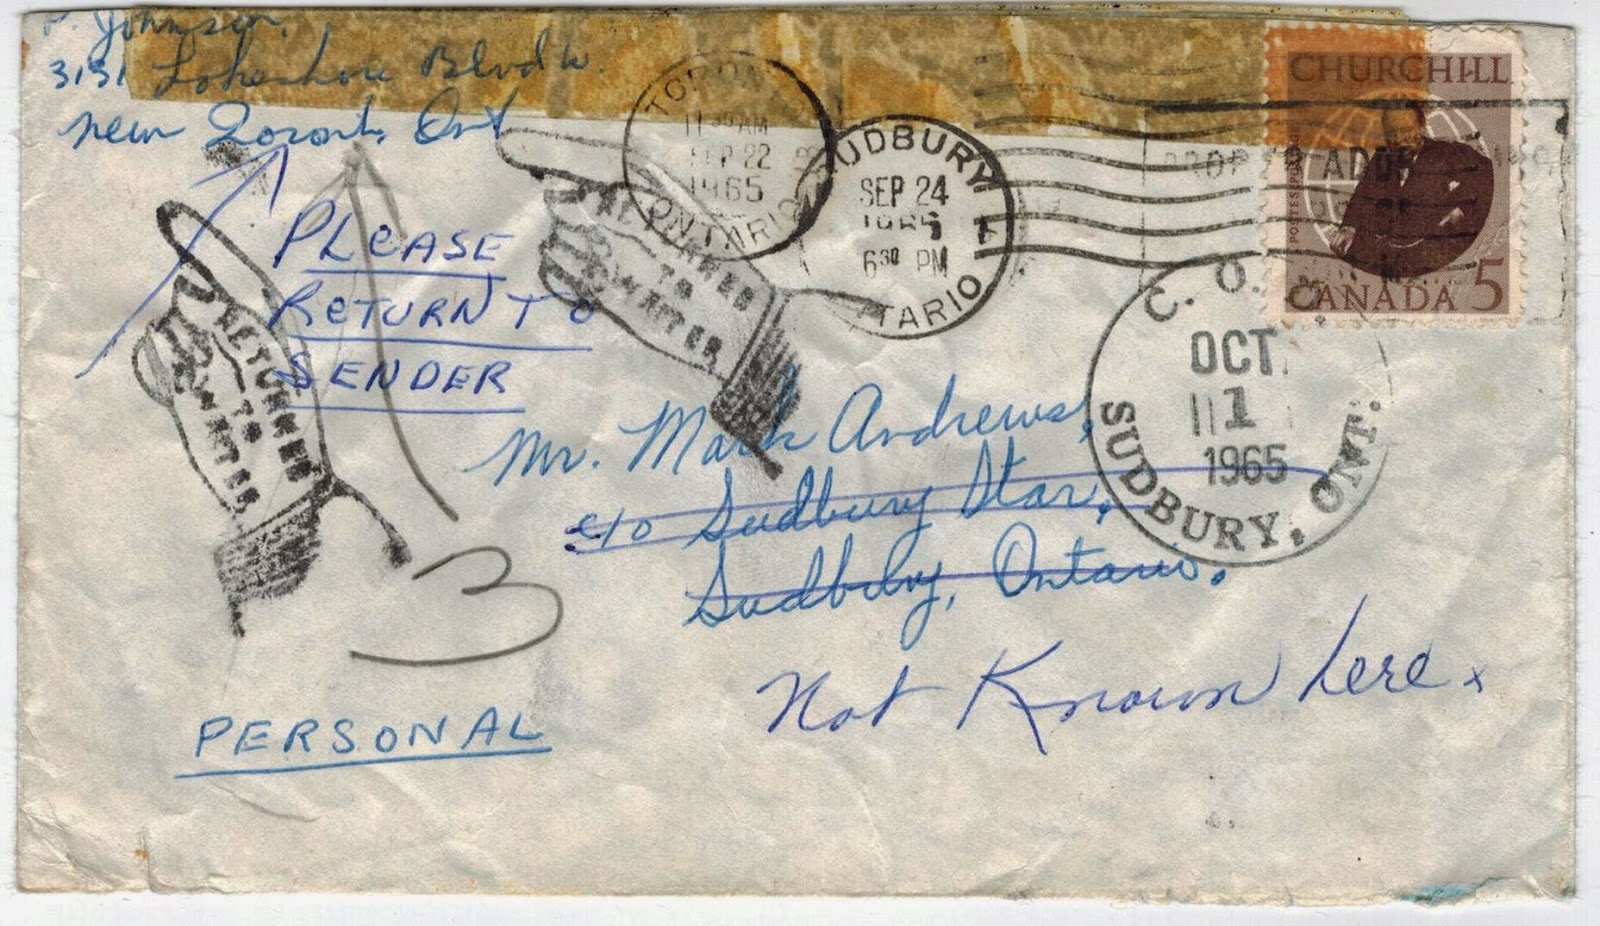 P. Johnson.
3131 Lakeshore Blvd W.
New Toronto, Ont
PLeASE
ReTURN TO
SENDER
RETURNED
TO
WRITER
RETURNED
TO
WRITER
TORONTO
11 30 AM
SEP 22
1965
ONTARIO
SUDBURY
SEP 24
1965
6 30 PM
ONTARIO
CHURCHILL
POSTES POSTAGE
CANADA 5
OCT
1
1965
SUDBURY, ONT.
Mr. Mark Andrews,
c/o Sudbury Star,
Sudbury, Ontario.
3
Not Known here.
PERSONAL